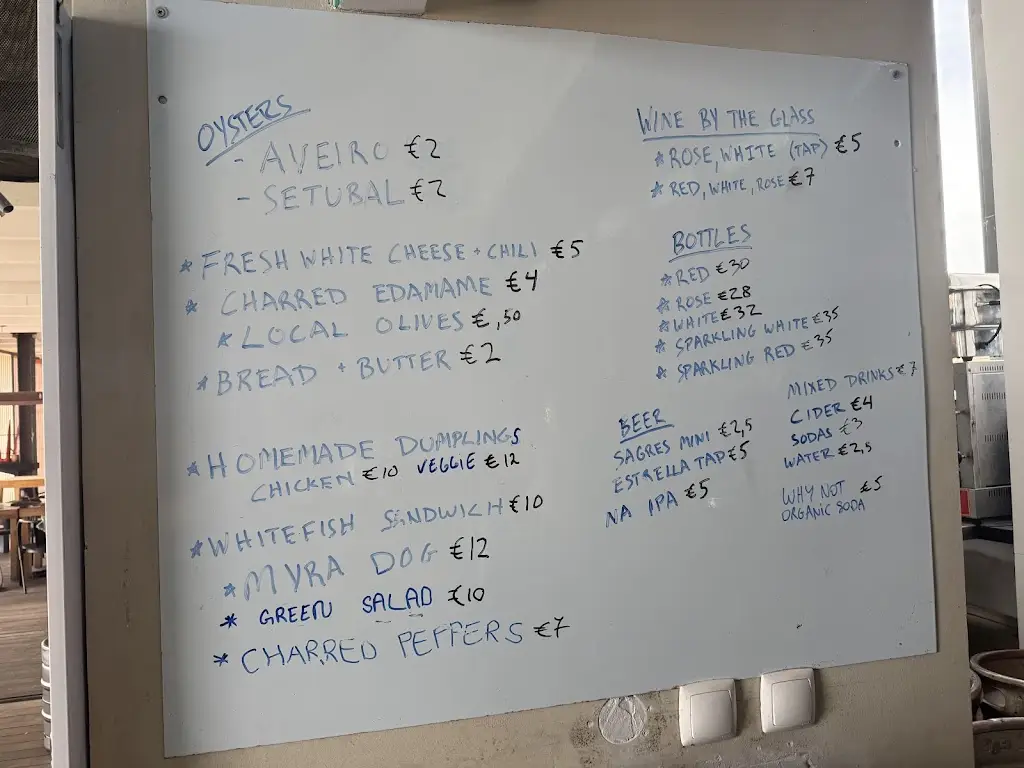 OYSTERS
- AVEIRO €2
- SETUBAL €2
* FRESH WHITE CHEESE + CHILI €5
* CHARRED EDAMAME €4
* LOCAL OLIVES €,50
* BREAD + BUTTER €2
* HOMEMADE DUMPLINGS
CHICKEN €10 VEGGIE €12
* WHITEFISH SANDWICH €10
* MYRA DOG €12
* GREEN SALAD €10
* CHARRED PEPPERS €7
WINE BY THE GLASS
* ROSE, WHITE (TAP) €5
* RED, WHITE, ROSE €7
BOTTLES
* RED €30
* ROSE €28
* WHITE €32
* SPARKLING WHITE €35
* SPARKLING RED €35
BEER
SAGRES MINI €2,5
ESTRELLA TAP €5
NA IPA €5
MIXED DRINKS €7
CIDER €4
SODAS €3
WATER €2,5
WHY NOT €5
ORGANIC SODA